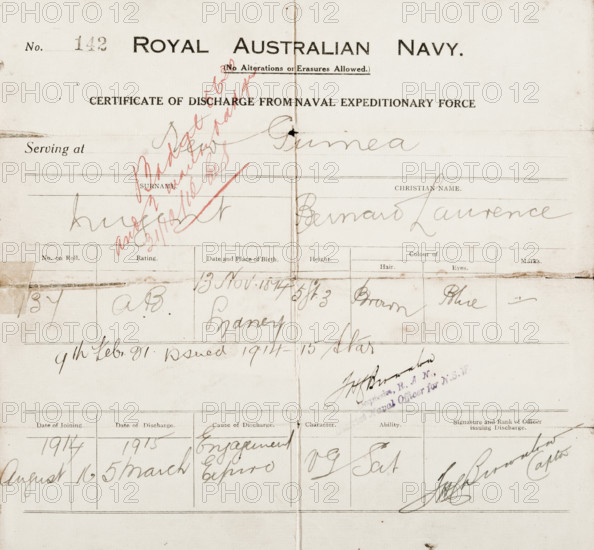 No. 142 ROYAL AUSTRALIAN NAVY.
(No Alterations or Erasures Allowed.)
CERTIFICATE OF DISCHARGE FROM NAVAL EXPEDITIONARY FORCE
Serving at New Guinea
SURNAME. CHRISTIAN NAME.
Nugent Bernard Laurence
No. on Roll. Rating. Date and Place of Birth. Height. Colour of Marks.
Hair. Eyes.
137 A.B. 13 Nov. 1894 5ft 3 Brown Blue —
Sydney
4th Feb. 21 issued 1914-15 Star
R.A.N.,
Naval Officer for N.S.W
Date of Joining. Date of Discharge. Cause of Discharge. Character. Ability. Signature and Rank of Officer
issuing Discharge.
1914 1915 Engagement
August 5 March Expired VG Sat
Captn
PHOTO 12